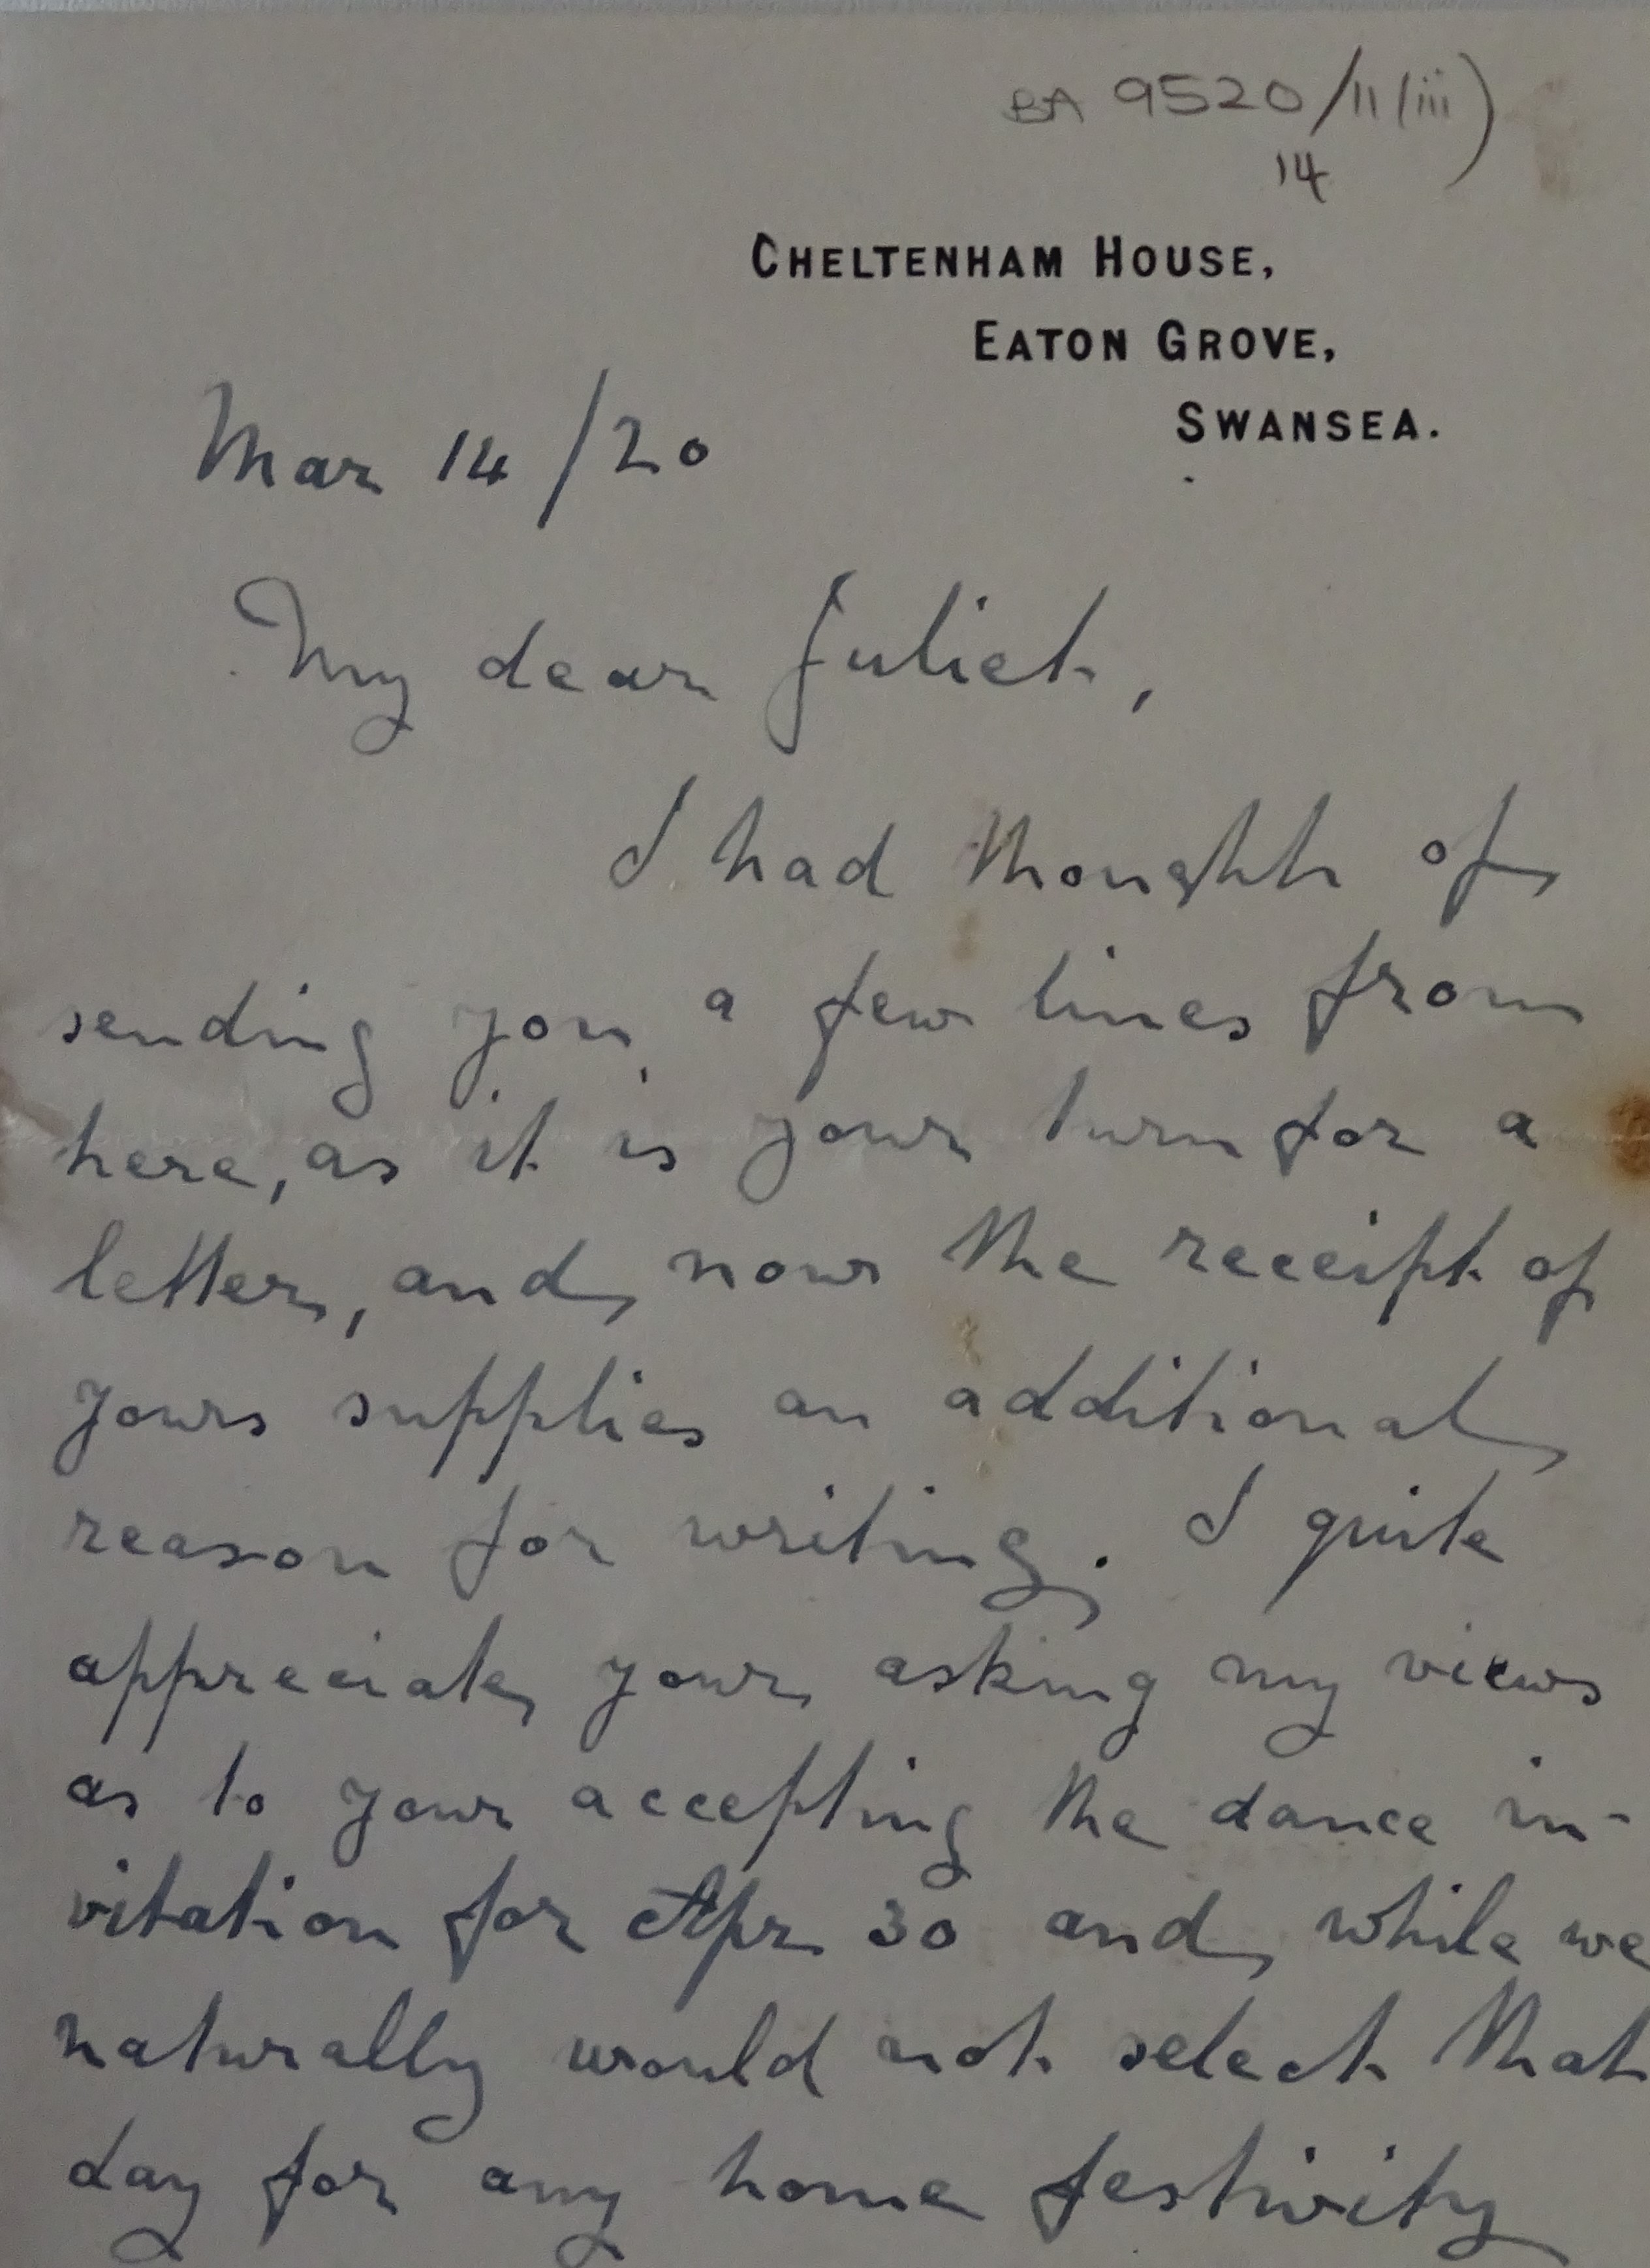 BA 9520/11(iii)
14
CHELTENHAM HOUSE,
EATON GROVE,
SWANSEA.
Mar 14/20
My dear Juliet,
I had thought of
sending you, a few lines from
here, as it is your turn for a
letter, and now the receipt of
yours supplies an additional
reason for writing. I quite
appreciate your asking my views
as to your accepting the dance in-
vitation for Apr 30 and while we
naturally would not select that
day for any home festivity